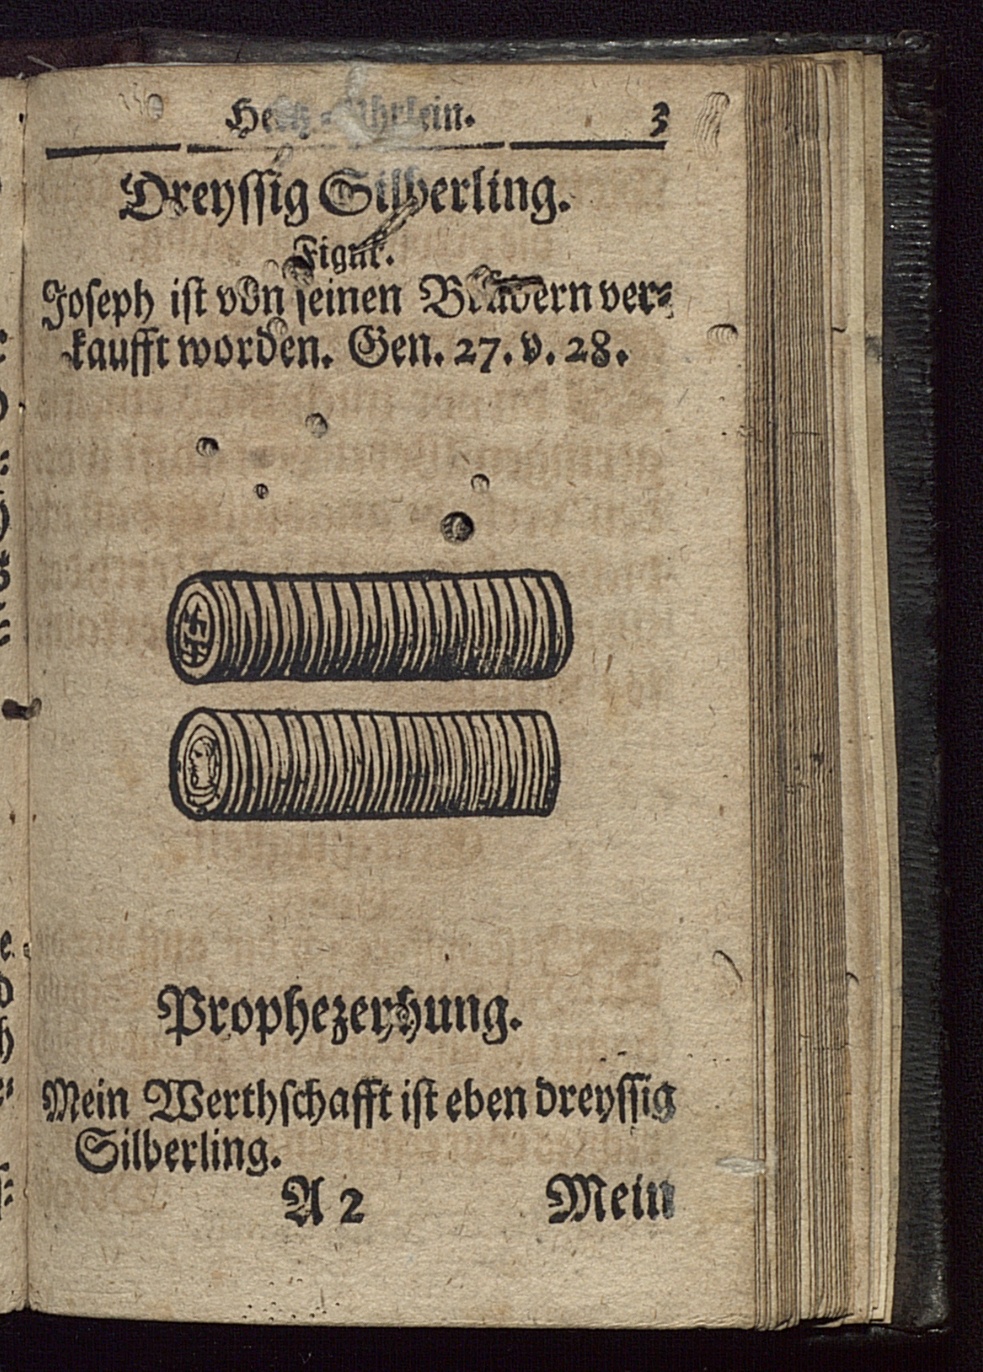 Hertz-Uhrlein. 3
Dreyssig Silberling.
Figur.
Joseph ist von seinen Brüdern ver-
kaufft worden. Gen. 27. v. 28.
Prophezeyhung.
Mein Werthschafft ist eben dreyssig
Silberling.
A 2 Mein